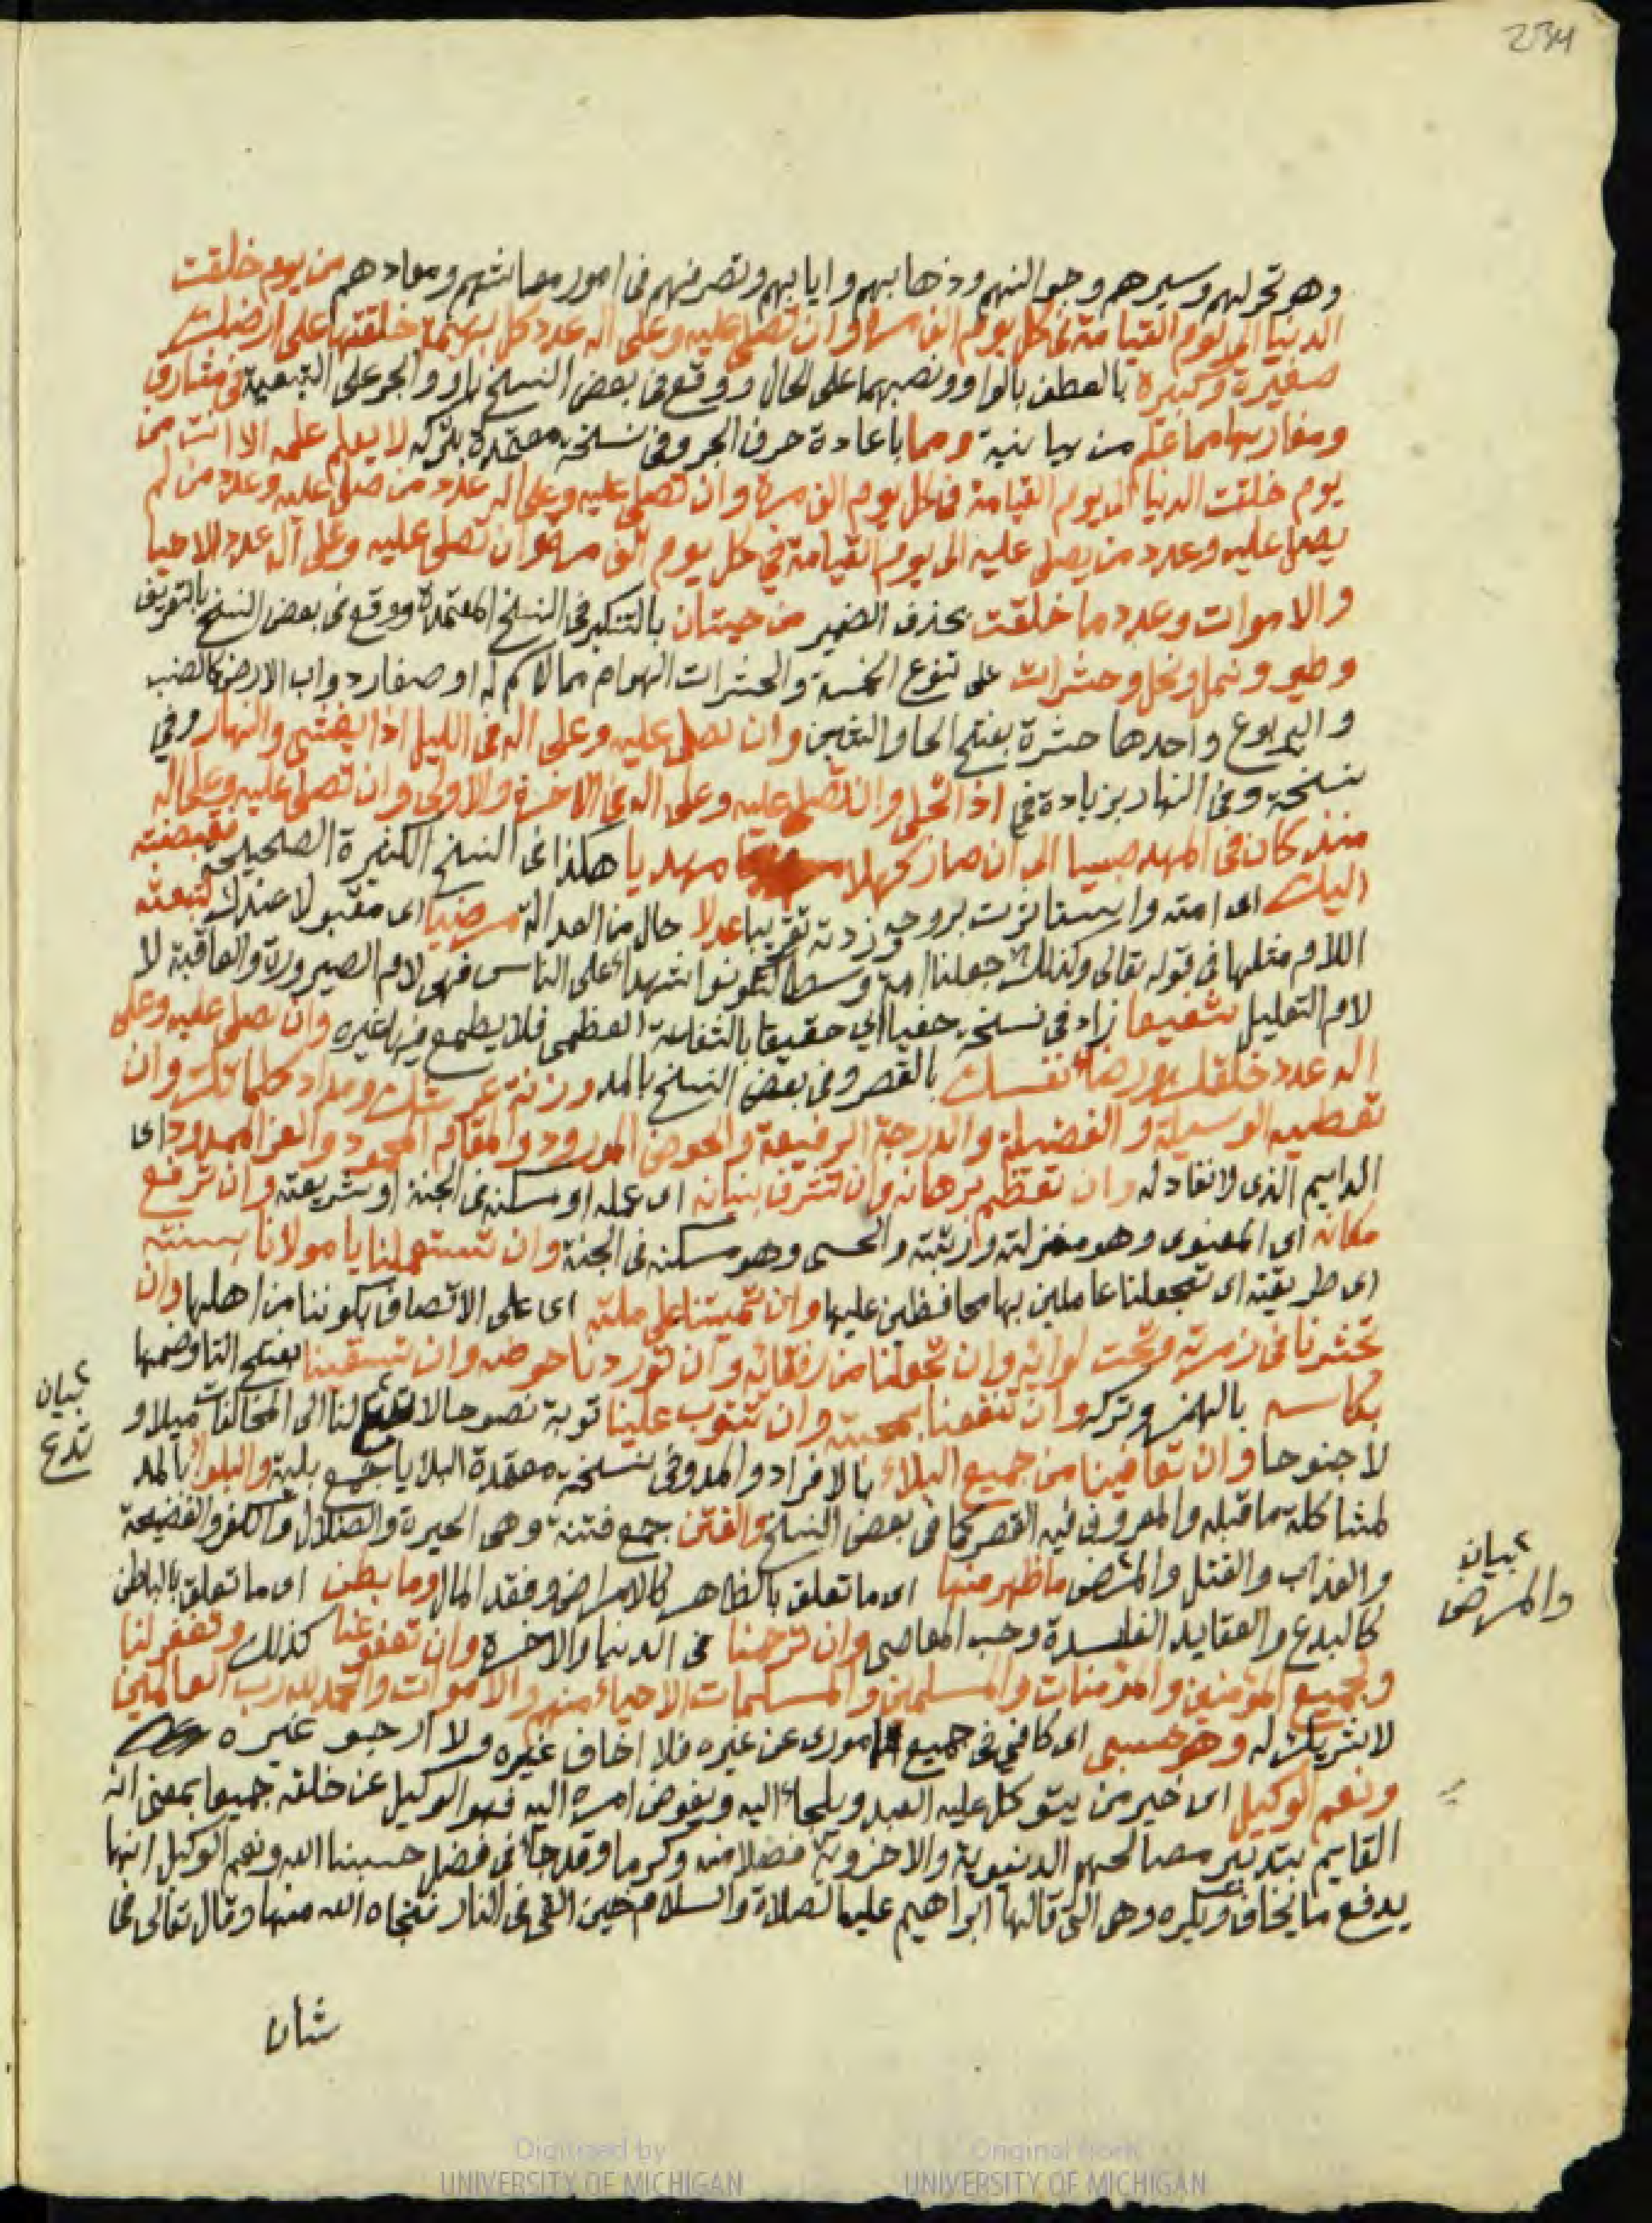 234
وهو تحركهم وسيرهم وجولانهم وذهابهم وايابهم وتصرفهم فى امور معاشهم ومعادهم من يوم خلقت
الدنيا الى يوم القيامة فى كل يوم الف مرة وان تصلى عليه وعلى اله عدد كل بهيمة خلقتها على ارضك
صغيرة وكبيرة بالعطف بالواو ونصبهما على الحال ووقع فى بعض النسخ باو والجر على التبعية فى مشارق
ومغاربها مما علم من بيانية ومما باعادة حرف الجر وفى نسخة معتمدة بتركه لا يعلم علمه الا انت من
يوم خلقت الدنيا الى يوم القيامة فى كل يوم الف مرة وان تصلى عليه وعلى اله عدد من صلى عليه وعدد من لم
يصل عليه وعدد من يصلى عليه الى يوم القيامة في كل يوم الف مرة وان تصلى عليه وعلى آله عدد الاحيا
والاموات وعدد ما خلقت بحذف الضمير من حيتان بالتنكير فى النسخ المعتمدة ووقع فى بعض النسخ بالتعريف
وطير ونمل ونحل وحشرات على تنوع الخسة والحشرات الهوام مما لاكم له او صغار دواب الارض كالضب
واليربوع واحدها حشرة بفتح الحا والشين وان تصلى عليه وعلى اله فى الليل اذا يغشى والنهار وفي
نسخة وفى النهار بزيادة فى اذا تجلى وان تصلى عليه وعلى اله فى الاخرة والاولى وان تصلى عليه وعلى اله
منذ كان فى المهد صبيا الى ان صار كهلا مهديا هكذا فى النسخ الكثيرة الصحيحة فقبضته
اليك اى امته واستاثرت بروحه وزدته تقريبا عدلا حال من العدالة مرضيا اى مقبولا عندك لتبعثه
اللام مثلها فى قوله تعالى وكذلك جعلناكم امة وسطا لتكونوا شهداء على الناس فهى لام الصيرورة والعاقبة لا
لام التعليل شفيعا زاد فى نسخة حفيا اي حقيقا بالشفاعة العظمى فلا يطمع فيها غيره وان تصلى عليه وعلى
اله عدد خلقك ورضاء نفسك بالقصر وفى بعض النسخ بالمد وزنة عرشك ومداد كلماتك وان
تعطيه الوسيلة والفضيلة والدرجة الرفيعة والحوض المورود والمقام المحمود والعز الممدود اى
الدايم الذى لا نفاد له وان تعظم برهانه وان تشرف بنيانه اى عمله او مسكنه فى الجنة او شريعته وان ترفع
مكانه اى المعنوى وهو منزلته ورتبته والحسى وهو مسكنه فى الجنة وان تستعملنا يا مولانا بسنته
اى طريقته اى تجعلنا عاملين بها محافظين عليها وان تميتنا على ملته اى على الاتصاف بكوننا من اهلها وان
تحشرنا فى زمرته وتحت لوايه وان تجعلنا من رفقائه وان توردنا حوضه وان تسقينا بفتح التا وضمها
بكاسه بالهمز وتركه وان تنفعنا بمحبته وان تتوب علينا توبة نصوحا لا تدع لنا الى المخالفات ميلا و
لا جنوحا وان تعافينا من جميع البلاء بالافراد والمد وفى نسخة معتمدة البلايا جمع بلية والبلواء بالمد
لمشاكلة ما قبله والمعروف فيه القصر كما فى بعض النسخ والفتن جمع فتنة وهى الحيرة والضلال والكفر والفضيحة
والعذاب والقتل والمرض ما ظهر منها اى ما تعلق بالظاهر كالامراض وفقد المال وما بطن اى ما تعلق بالباطن
كالبدع والعقايد الفاسدة وحب المعاصى وان ترحمنا فى الدنيا والاخرة وان تعفو عنا كذلك وتغفر لنا
ولجميع المؤمنين والمؤمنات والمسلمين والمسلمات الاحياء منهم والاموات والحمد لله رب العالمين
لا شريك له وهو حسبى اى كافي فى جميع امورى عن غيره فلا اخاف غيره ولا ارجو غيره
ونعم الوكيل اى خير من يتوكل عليه العبد ويلجاء اليه ويفوض امره اليه فهو الوكيل عن خلقه جميعا بمعنى انه
القايم بتدبير مصالحهم الدنيوية والاخروية فضلا منه وكرما وقد جاء فى فضل حسبنا الله ونعم الوكيل انها
يدفع ما يخاف ويكره وهى التى قالها ابراهيم عليه الصلاة والسلام حين القى فى النار فنجاه الله منها وقال تعالى فى
شان
بيان
تدع
بيان
والمرض
Digitized by
UNIVERSITY OF MICHIGAN
Original from
UNIVERSITY OF MICHIGAN